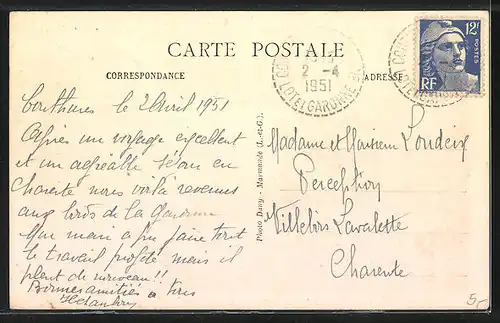 CARTE POSTALE
CORRESPONDANCE
ADRESSE
12F
POSTES
RF
2 - 4
1951
LOT-ET-GARONNE
Couthures le 2 Avril 1951
Après un voyage excellent
et un agréable séjour en
Charente nous voilà revenus
aux bords de la Garonne
Mon mari a pu faire tout
le travail projeté mais il
pleut de nouveau!!
Bonnes amitiés à tous
Photo Dany - Marmande (L.-et-G.)
Madame et Monsieur
Perception
Villebois Lavalette
Charente